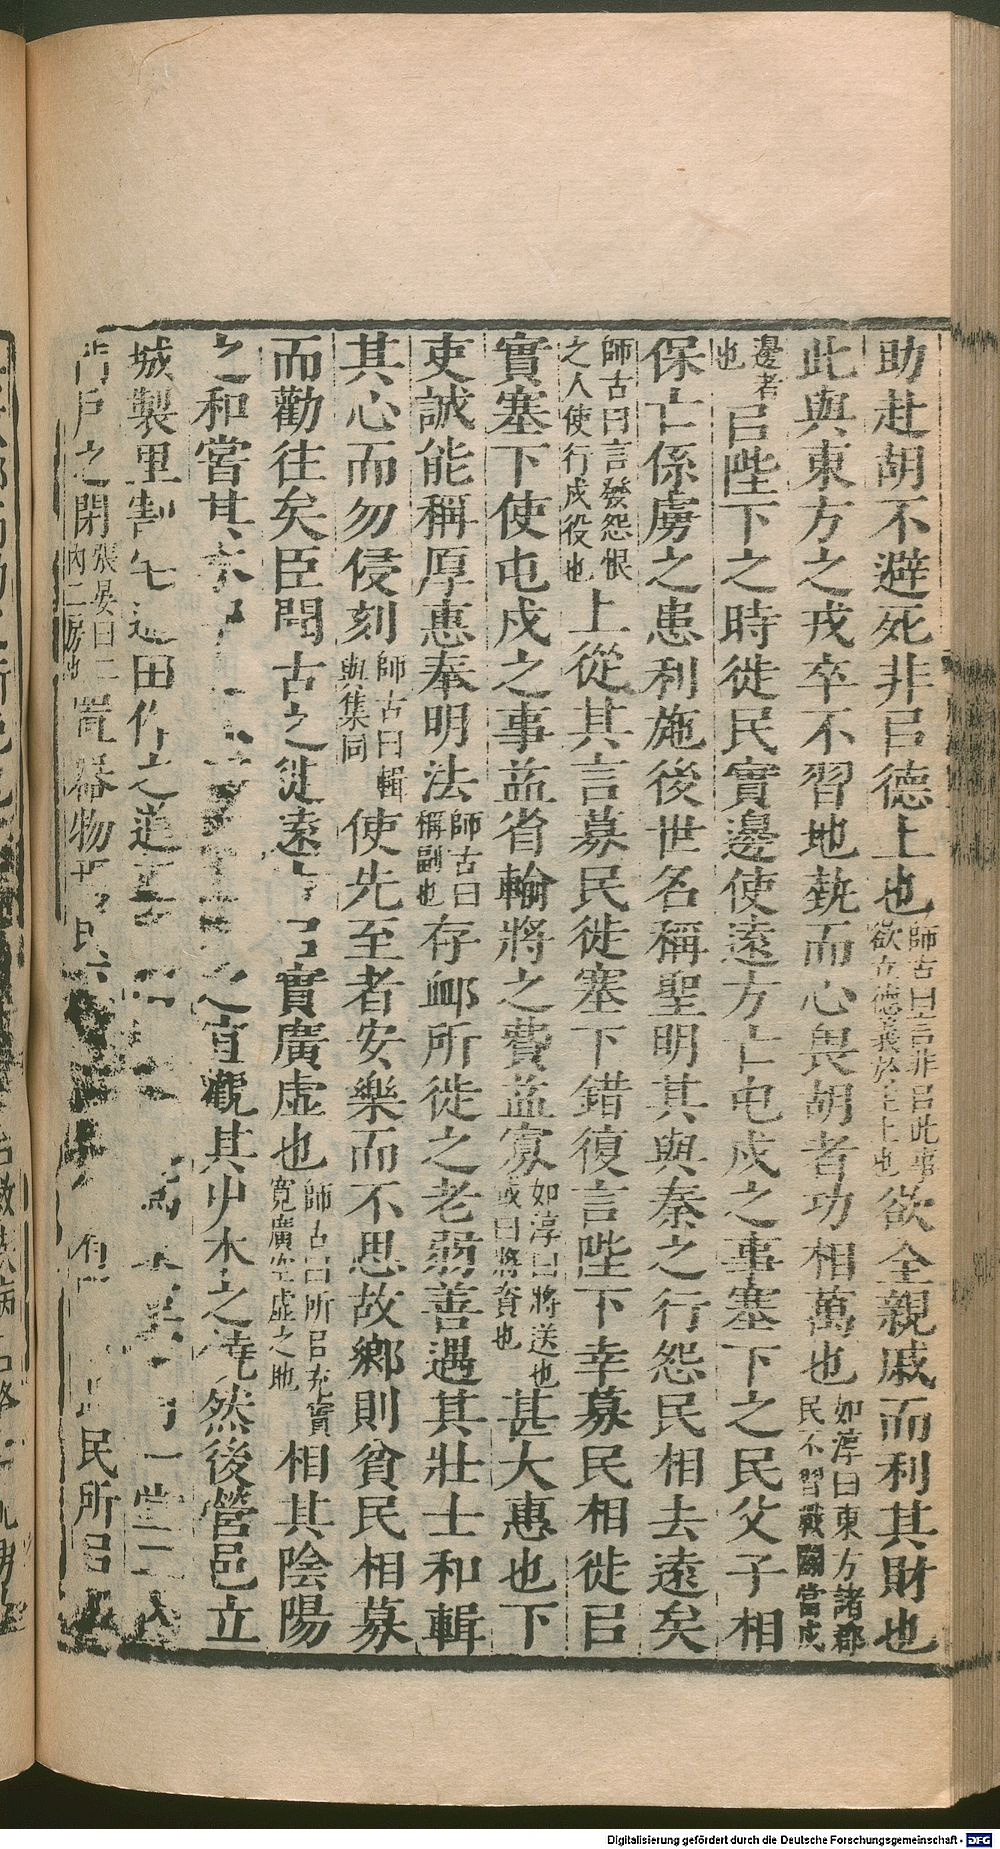 助赴胡不避死非㠯德上也師古曰言非㠯此事欲立德義於主上也欲全親戚而利其財也
此與東方之戎卒不習地埶而心畏胡者功相萬也如淳曰東方諸郡民不習戰當戍
邊者也㠯陛下之時徙民實邊使遠方亡屯戍之事塞下之民父子相
保亡係虜之患利施後世名稱聖明其與秦之行怨民相去遠矣
師古曰言發怨恨之人使行戍役也上從其言募民徙塞下錯復言陛下幸募民相徙㠯
實塞下使屯戍之事益省輸將之費益寡如淳曰將送也或曰將資也甚大惠也下
吏誠能稱厚惠奉明法師古曰稱副也存䘏所徙之老弱善遇其壯士和輯
其心而勿侵刻師古曰輯與集同使先至者安樂而不思故鄉則貧民相募
而勸往矣臣聞古之徙遠㠯實廣虛也師古曰所㠯充實寬廣空虛之地相其陰陽
之和嘗其之宜觀其屮木之饒然後營邑立
城製里割田作之道一堂二
門戶之閉張晏曰二內二房也置器物民民所㠯
Digitalisierung gefördert durch die Deutsche Forschungsgemeinschaft - DFG